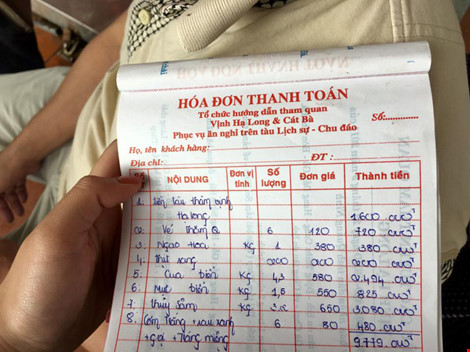 HÓA ĐƠN THANH TOÁN
Tổ chức hướng dẫn tham quan
Vịnh Hạ Long & Cát Bà
Phục vụ ăn nghỉ trên tàu Lịch sự - Chu đáo
Số:..............
Họ, tên khách hàng:
Địa chỉ: ĐT :
NỘI DUNG Đơn vị tính Số lượng Đơn giá Thành tiền
1. tàu thăm vịnh
Hạ long 1.600.000đ
2. Vé thăm Q 6 120 720.000đ
3. Ngao hoa kg 1 380 380.000đ
4. thịt rang
5. Cua biển kg 4,3 580 2.494.000đ
6. Mực biển kg 1,5 550 825.000đ
7. kg 650 3.080.000đ
8. Cơm trắng + rau xanh 6 80 480.000đ
+ tráng miệng 9.779.000đ